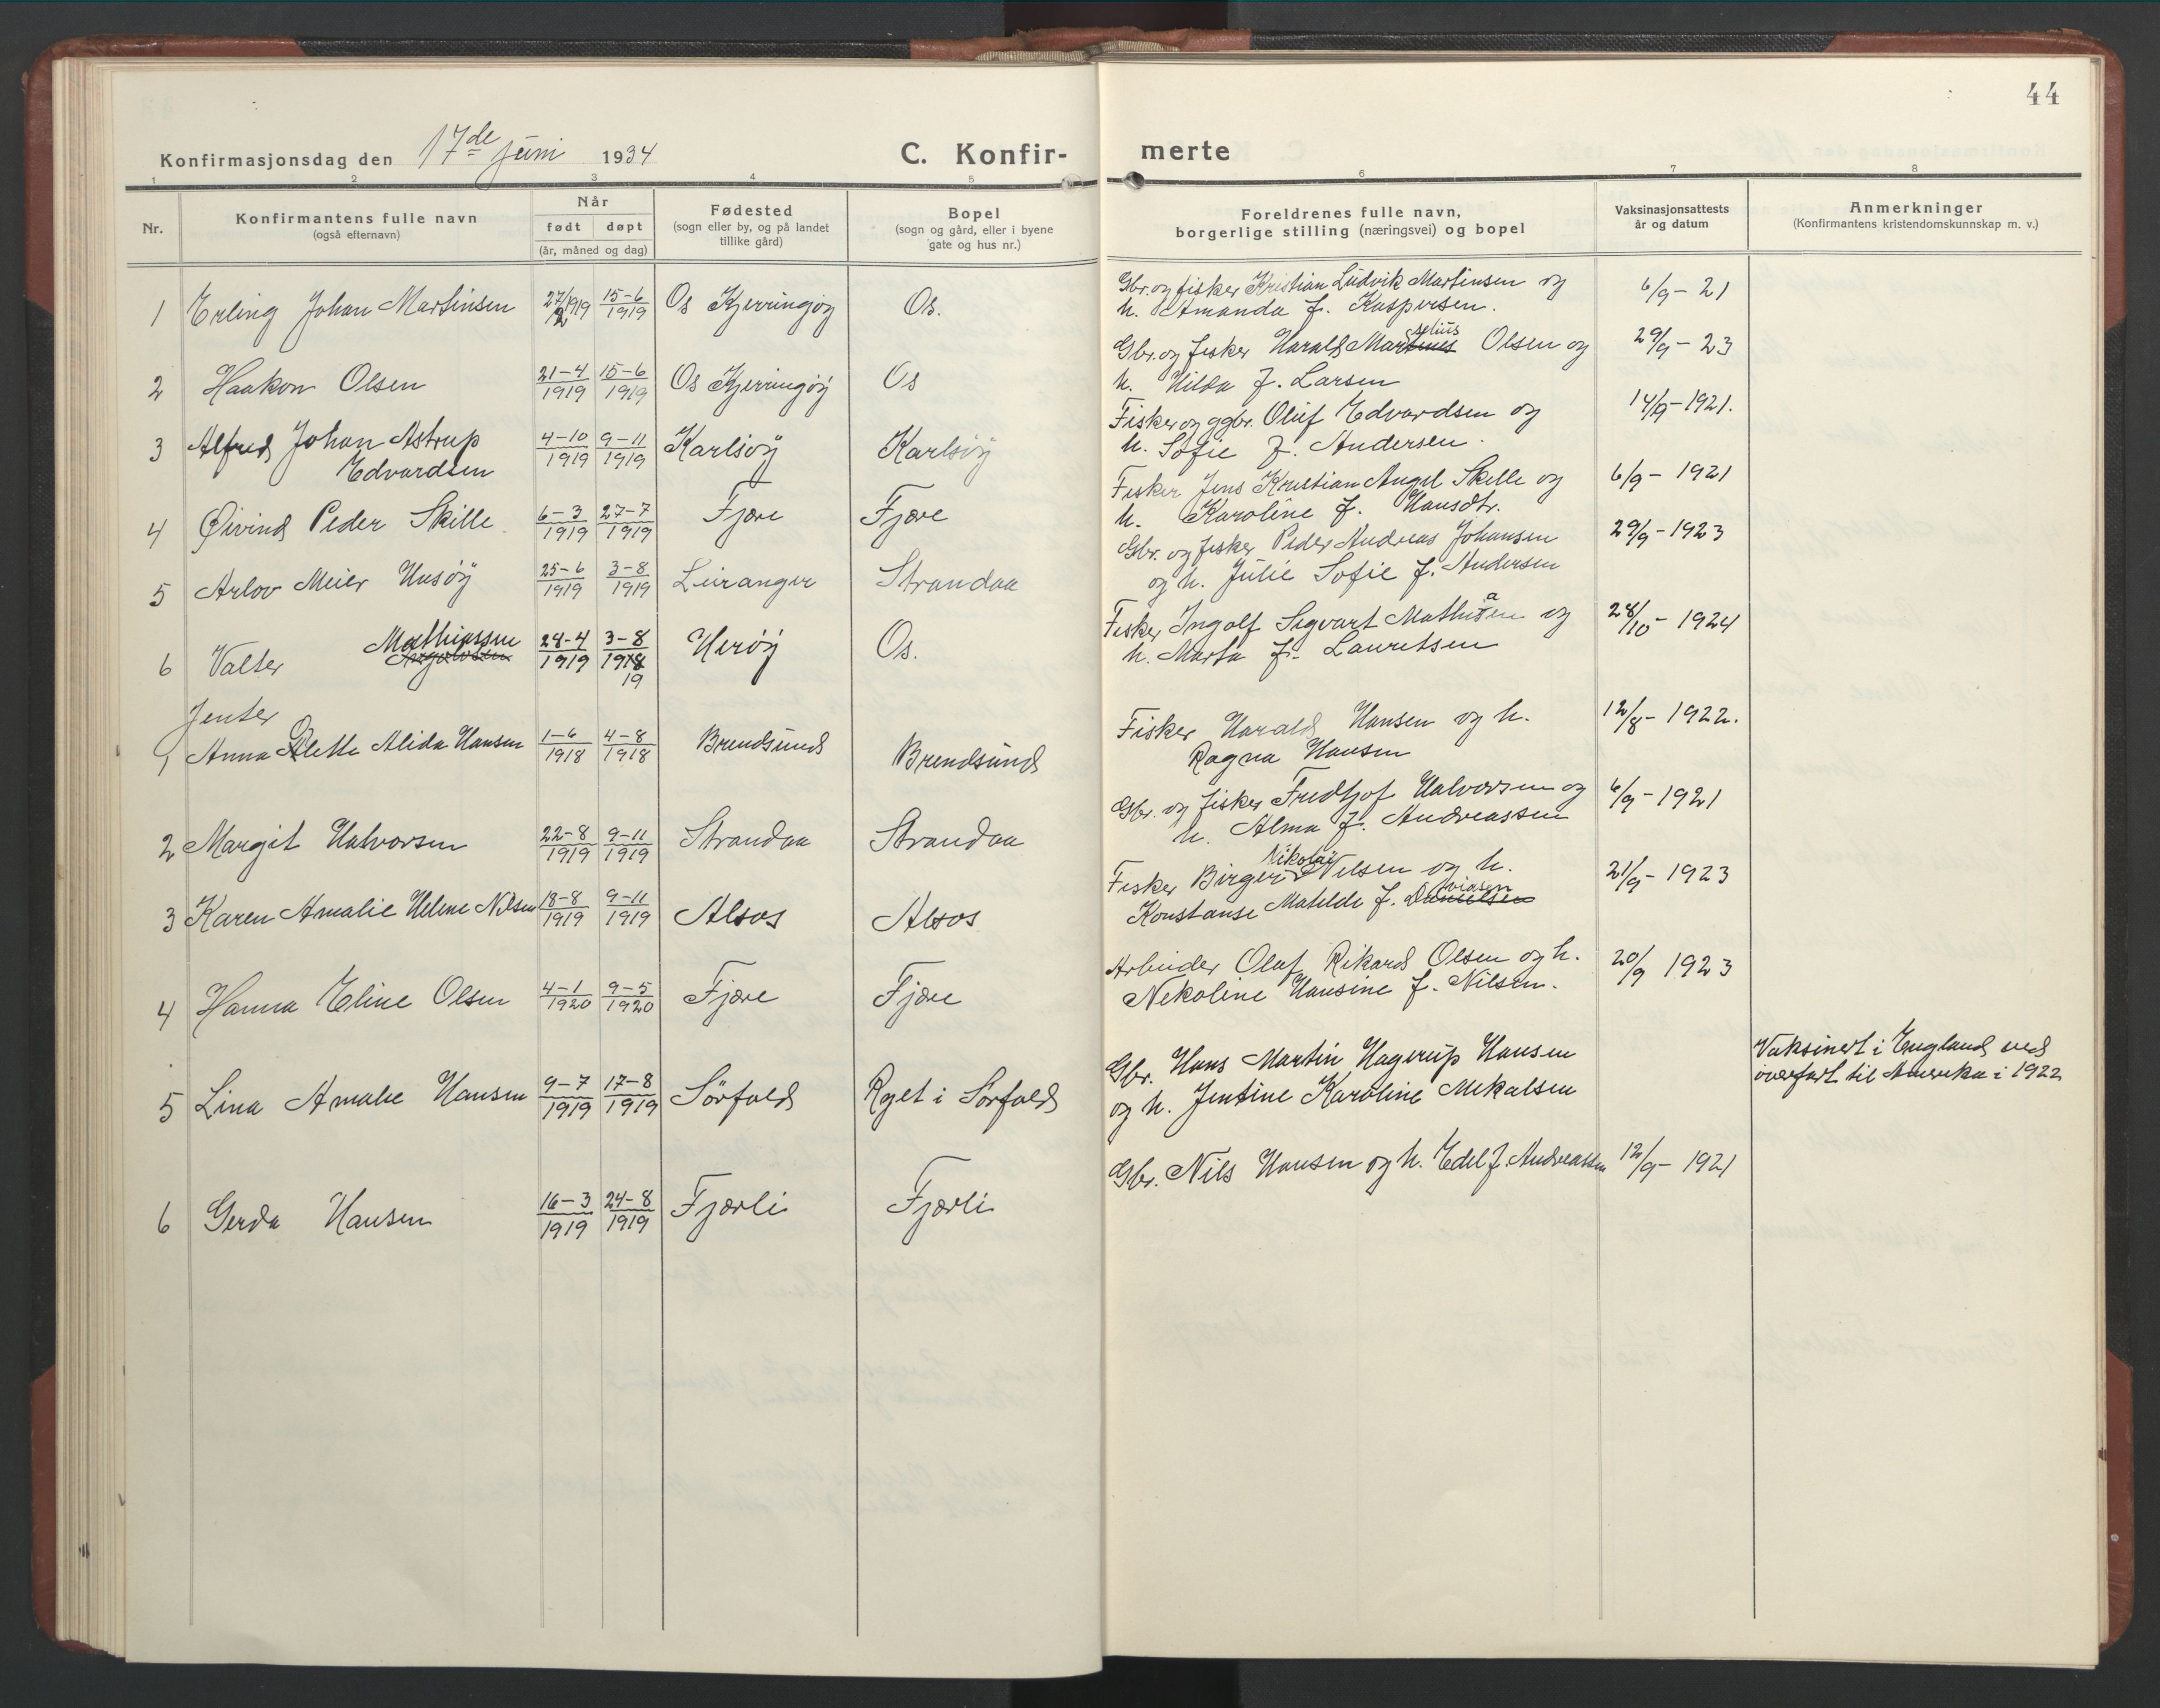 44
Konfirmasjonsdag den 17de juni 1934
C. Konfir- merte
1 2 3 4 5 6 7 8
Nr.
Konfirmantens fulle navn
(også efternavn)
Når
født døpt
(år, måned og dag)
Fødested
(sogn eller by, og på landet
tillike gård)
Bopel
(sogn og gård, eller i byene
gate og hus nr.)
Foreldrenes fulle navn,
borgerlige stilling (næringsvei) og bopel
Vaksinasjonsattests
år og datum
Anmerkninger
(Konfirmantens kristendomskunnskap m. v.)
1 Erling Johan Martinsen 27/2 1919 15-6 1919 Os Kjerringøy Os.
Gbr. og fisker Kristian Ludvik Martinsen og 6/9-21
h. Amanda f. Kaspersen.
2 Haakon Olsen 21-4 1919 15-6 1919 Os Kjerringøy Os
Gbr. og fisker Harald Marselius Olsen og 29/9-23
h. Hilda f. Larsen
3 Alfred Johan Astrup
Edvardsen 4-10 1919 9-11 1919 Karlsöy Karlsöy
Fisker og ggbr. Oluf Edvardsen og 14/9-1921.
h. Sofie f. Andersen.
4 Øivind Peder Skille 6-3 1919 27-7 1919 Fjære Fjære
Fisker Jens Kristian Angel Skille og 6/9-1921
h. Karoline f. Hansdtr.
5 Arlov Meier Husöy 25-6 1919 3-8 1919 Leiranger Strandaa
Gbr. og fisker Peder Andreas Johansen 29/9-1923
og h. Julie Sofie f. Andersen
6 Valter Mathiassen 28-4 1919 3-8 1918 19 Heröy Os.
Fisker Ingolf Sigvart Mathisen og 28/10-1924
h. Marta f. Lauritsen
Jenter
1 Anna Olette Alida Hansen 1-6 1918 4-8 1918 Brendsund Brendsund
Fisker Harald Hansen og h. 12/8-1922.
Ragna Hansen
2 Margit Halvorsen 22-8 1919 9-11 1919 Strandaa Strandaa
Gbr. og fisker Fredtjof Halvorsen og 6/9-1921
h. Alma f. Andreassen
3 Karen Amalie Helene Nilsen 18-8 1919 9-11 1919 Alsos Alsos
Fisker Birger Nikolai Nilsen og h. 21/9-1923
Konstanse Matilde f. Danielsen
4 Hanna Eline Olsen 4-1 1920 9-5 1920 Fjære Fjære
Arbeider Oluf Rikard Olsen og h. 20/9 1923
Nekoline Hansine f. Nilsen.
5 Lina Amalie Hansen 9-7 1919 17-8 1919 Sörfold Röset i Sörfold
Gbr. Hans Martin Hagerup Hansen
og h. Jentine Karoline Mekalsen
Vaksinert i England ved
overfart til Amerika i 1922
6 Gerda Hansen 16-3 1919 24-8 1919 Fjærli Fjærli
Gbr. Nils Hansen og h. Edel f. Andreassen 12/9-1921